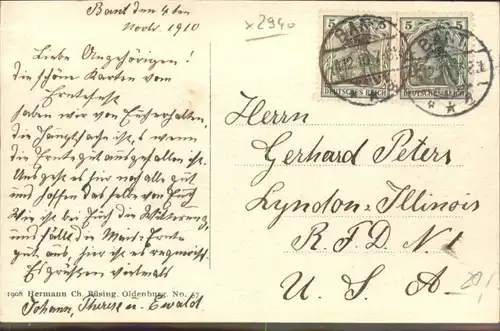 Bant den 4 ten
Novbr. 1910
x 2940
Liebe Angehörigen!
die schönen Karten vom
Erntefest
haben wir von Euch erhalten,
die Hauptsache ist, es wenn
die Ernte gut ausgefallen ist.
Uns geht es hier noch alle gut
und hoffen dasselbe von Euch
Wie ist bei Euch die Witterung
und fällt die Mais-Ernte
gut aus, hier ist es regnerisch.
Es grüßen vielmals
Johann, Therese u. Ewald
1908 Hermann Ch. Büsing, Oldenburg. No. 57
5 5
DEUTSCHES REICH
5 5
DEUTSCHES REICH
BANT
BANT
Herrn
Gerhard Peters
Lyndon-Illinois
R. F. D. N 1
U. S. A.
20,-